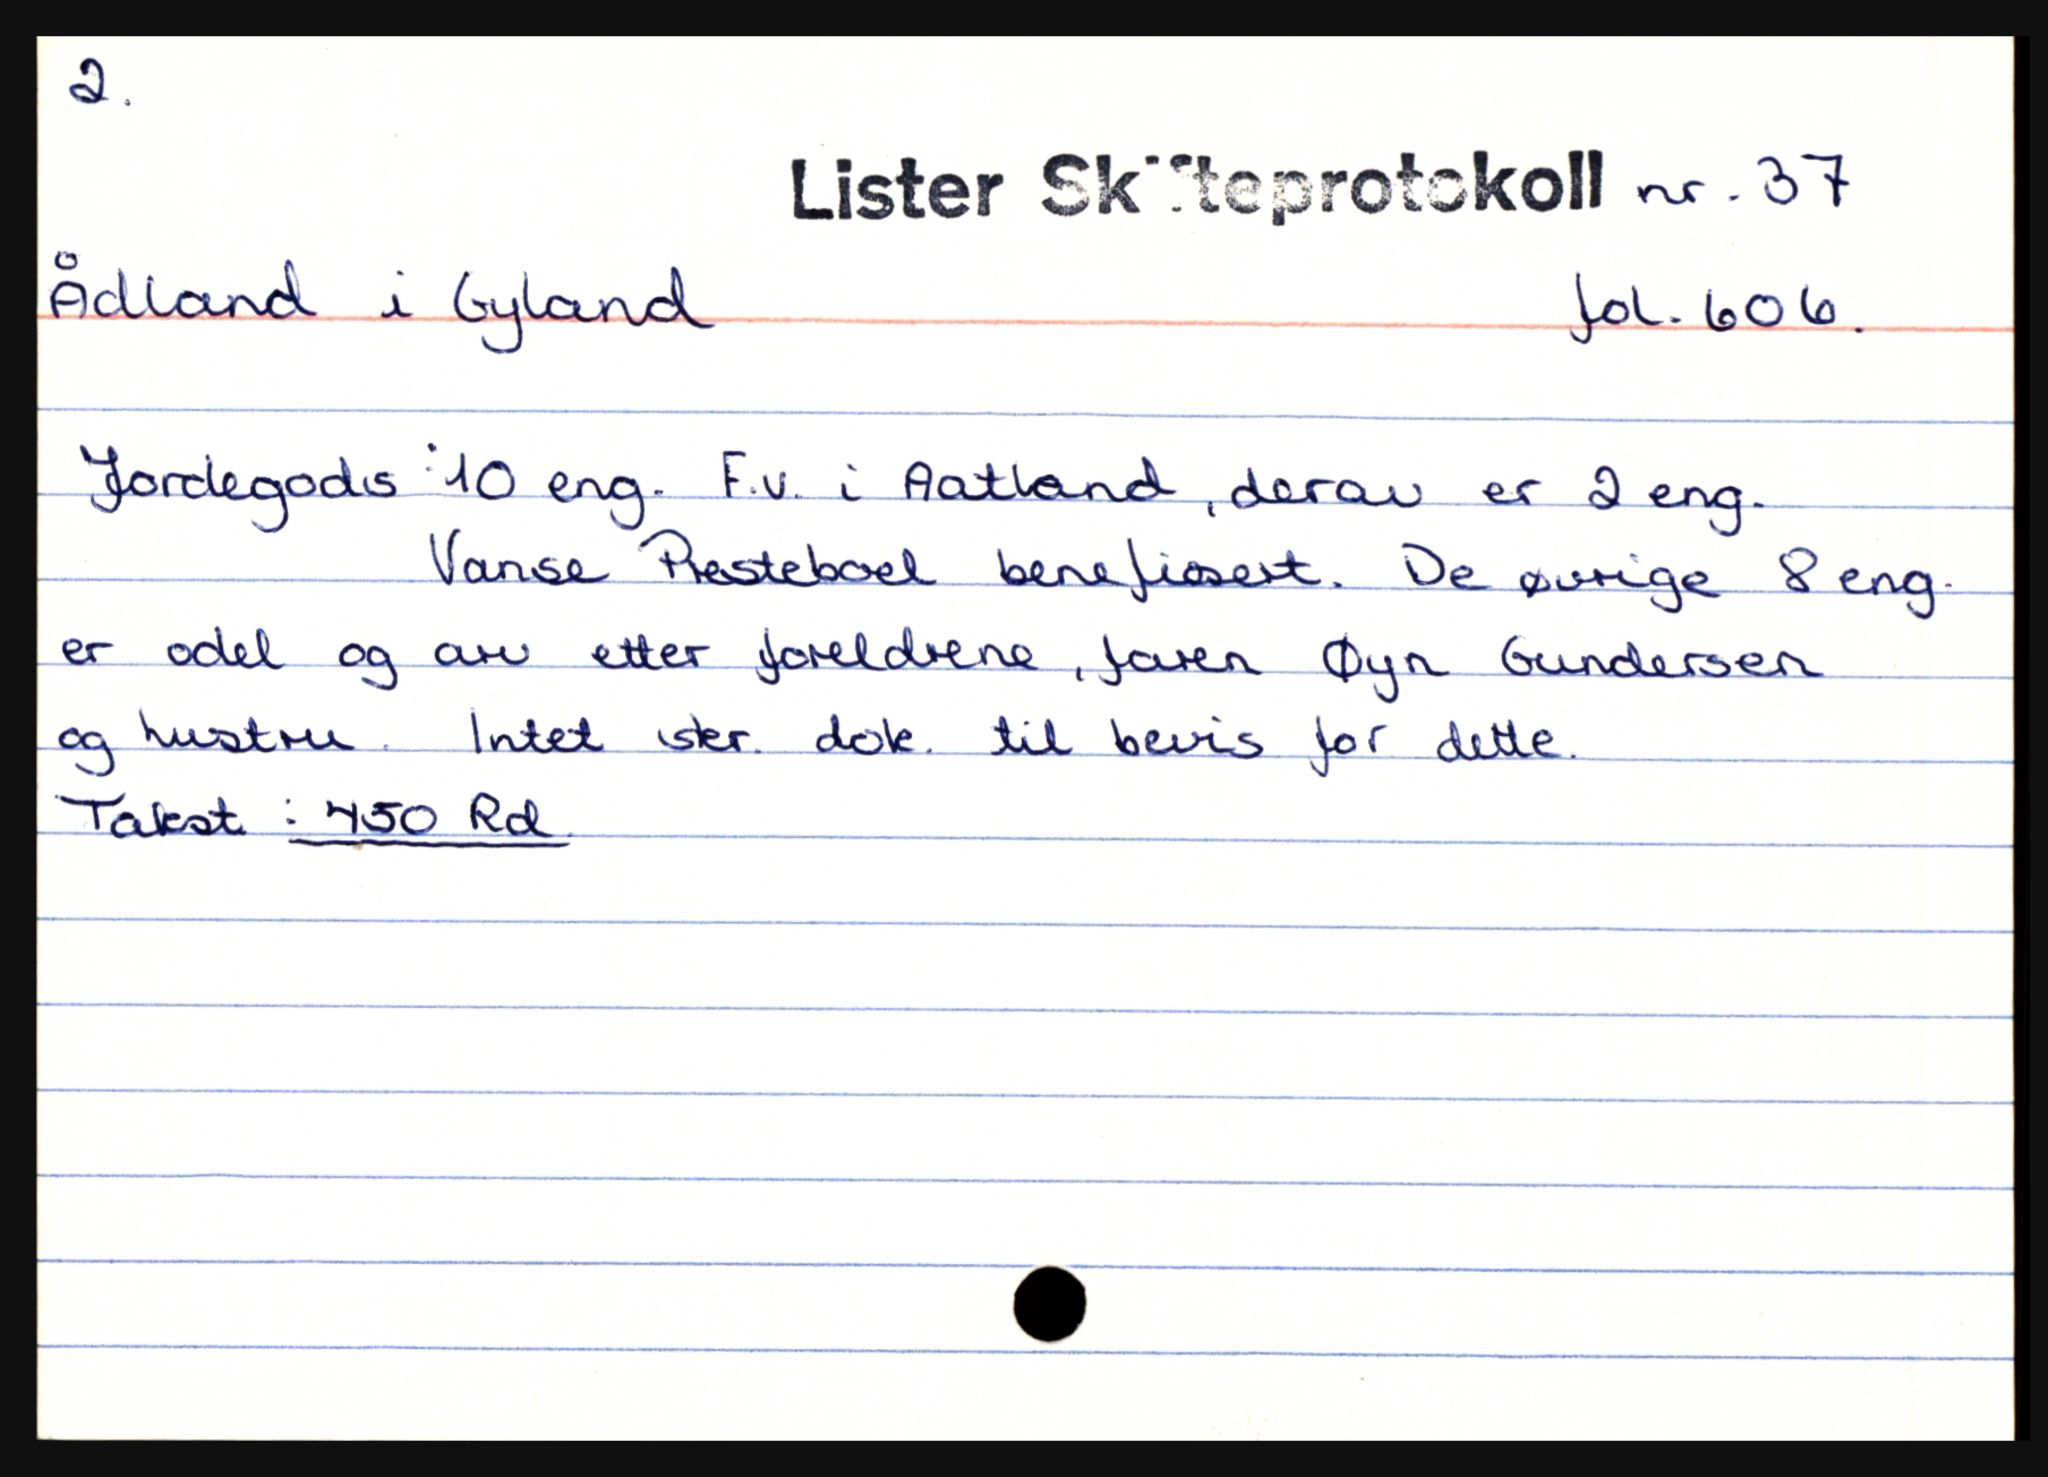 2.
Lister Skifteprotokoll nr. 37
Ådland i Gyland fol. 606.
Jordegods : 10 eng. F.v. i Aatland, derav er 2 eng.
Vanse Presteboel benefisert. De øvrige 8 eng.
er odel og arv etter foreldrene, faren Øyn Gundersen
og hustru. Intet skr. dok. til bevis for dette.
Takst : 450 Rd.